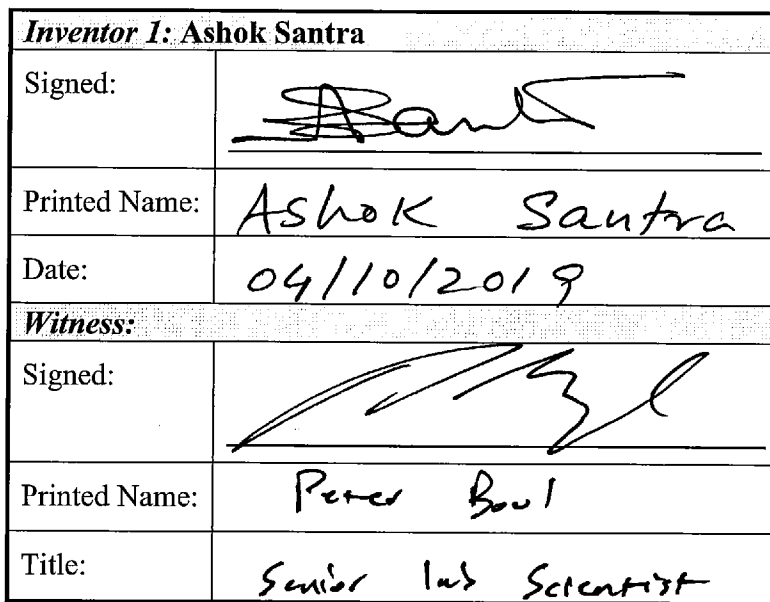 Inventor 1: Ashok Santra
Signed: ASant
Printed Name: Ashok Santra
Date: 04/10/2019
Witness:
Signed:
Printed Name: Peter Boul
Title: Senior lab Scientist